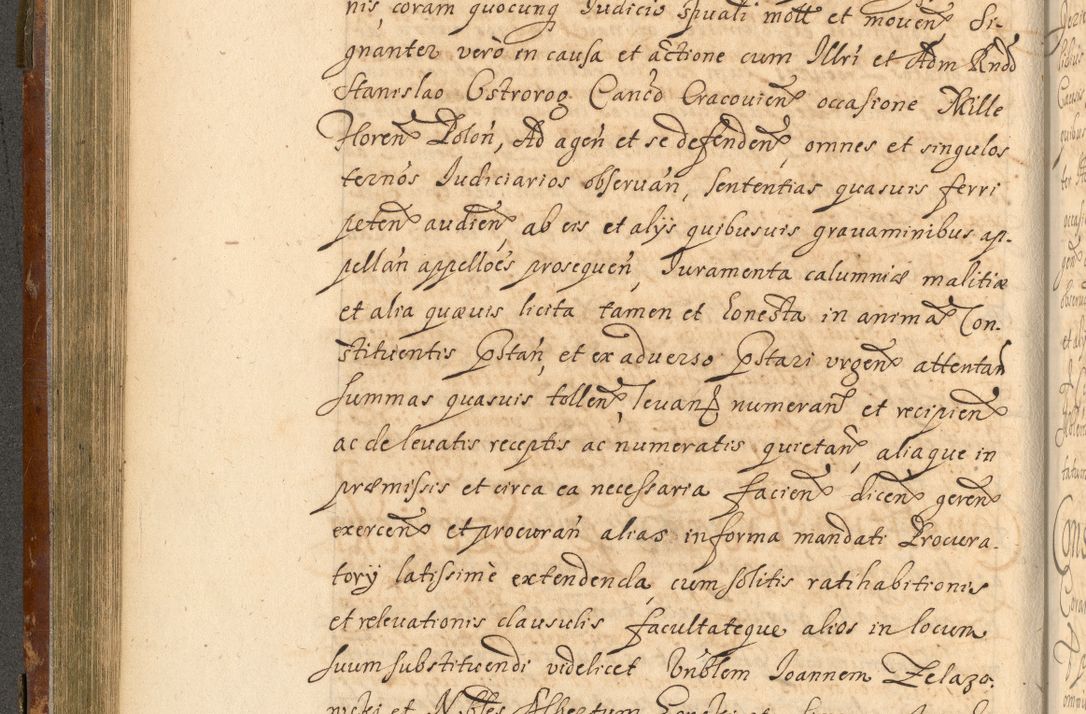 nis, coram quocunq Iudicio spuali mott et mouen Si-
gnanter verò in causa et actione cum Illri et Adm Rndo
Stanislao Ostrorog Cancd Cracouien occasione Mille
Floren Polon, Ad agen et se defenden, omnes et singulos
ternos Iudiciarios obseruan, sententias quasuis ferri
peten audien, ab eis et alys quibusuis grauaminibus ap-
pellan appelloēs prosequen, Iuramenta calumniæ malitiæ
et alia quæuis licita tamen et honesta in anima Con-
stituentis Pstan, et ex aduerso Pstari vrgen attentan
summas quasuis tollen, leuan numeran et recipien
ac de leuatis receptis ac numeratis quietan, aliaque in
præmissis et circa ea necessaria facien dicen geren
exercen et procuran alias in forma mandati Procura-
tory latissimè extendenda, cum solitis ratihabitionis
et releuationis clausulis facultateque alios in locum
suum substituendi videlicet Vnblem Ioannem Zelazo-
wski et Nobles Albertum